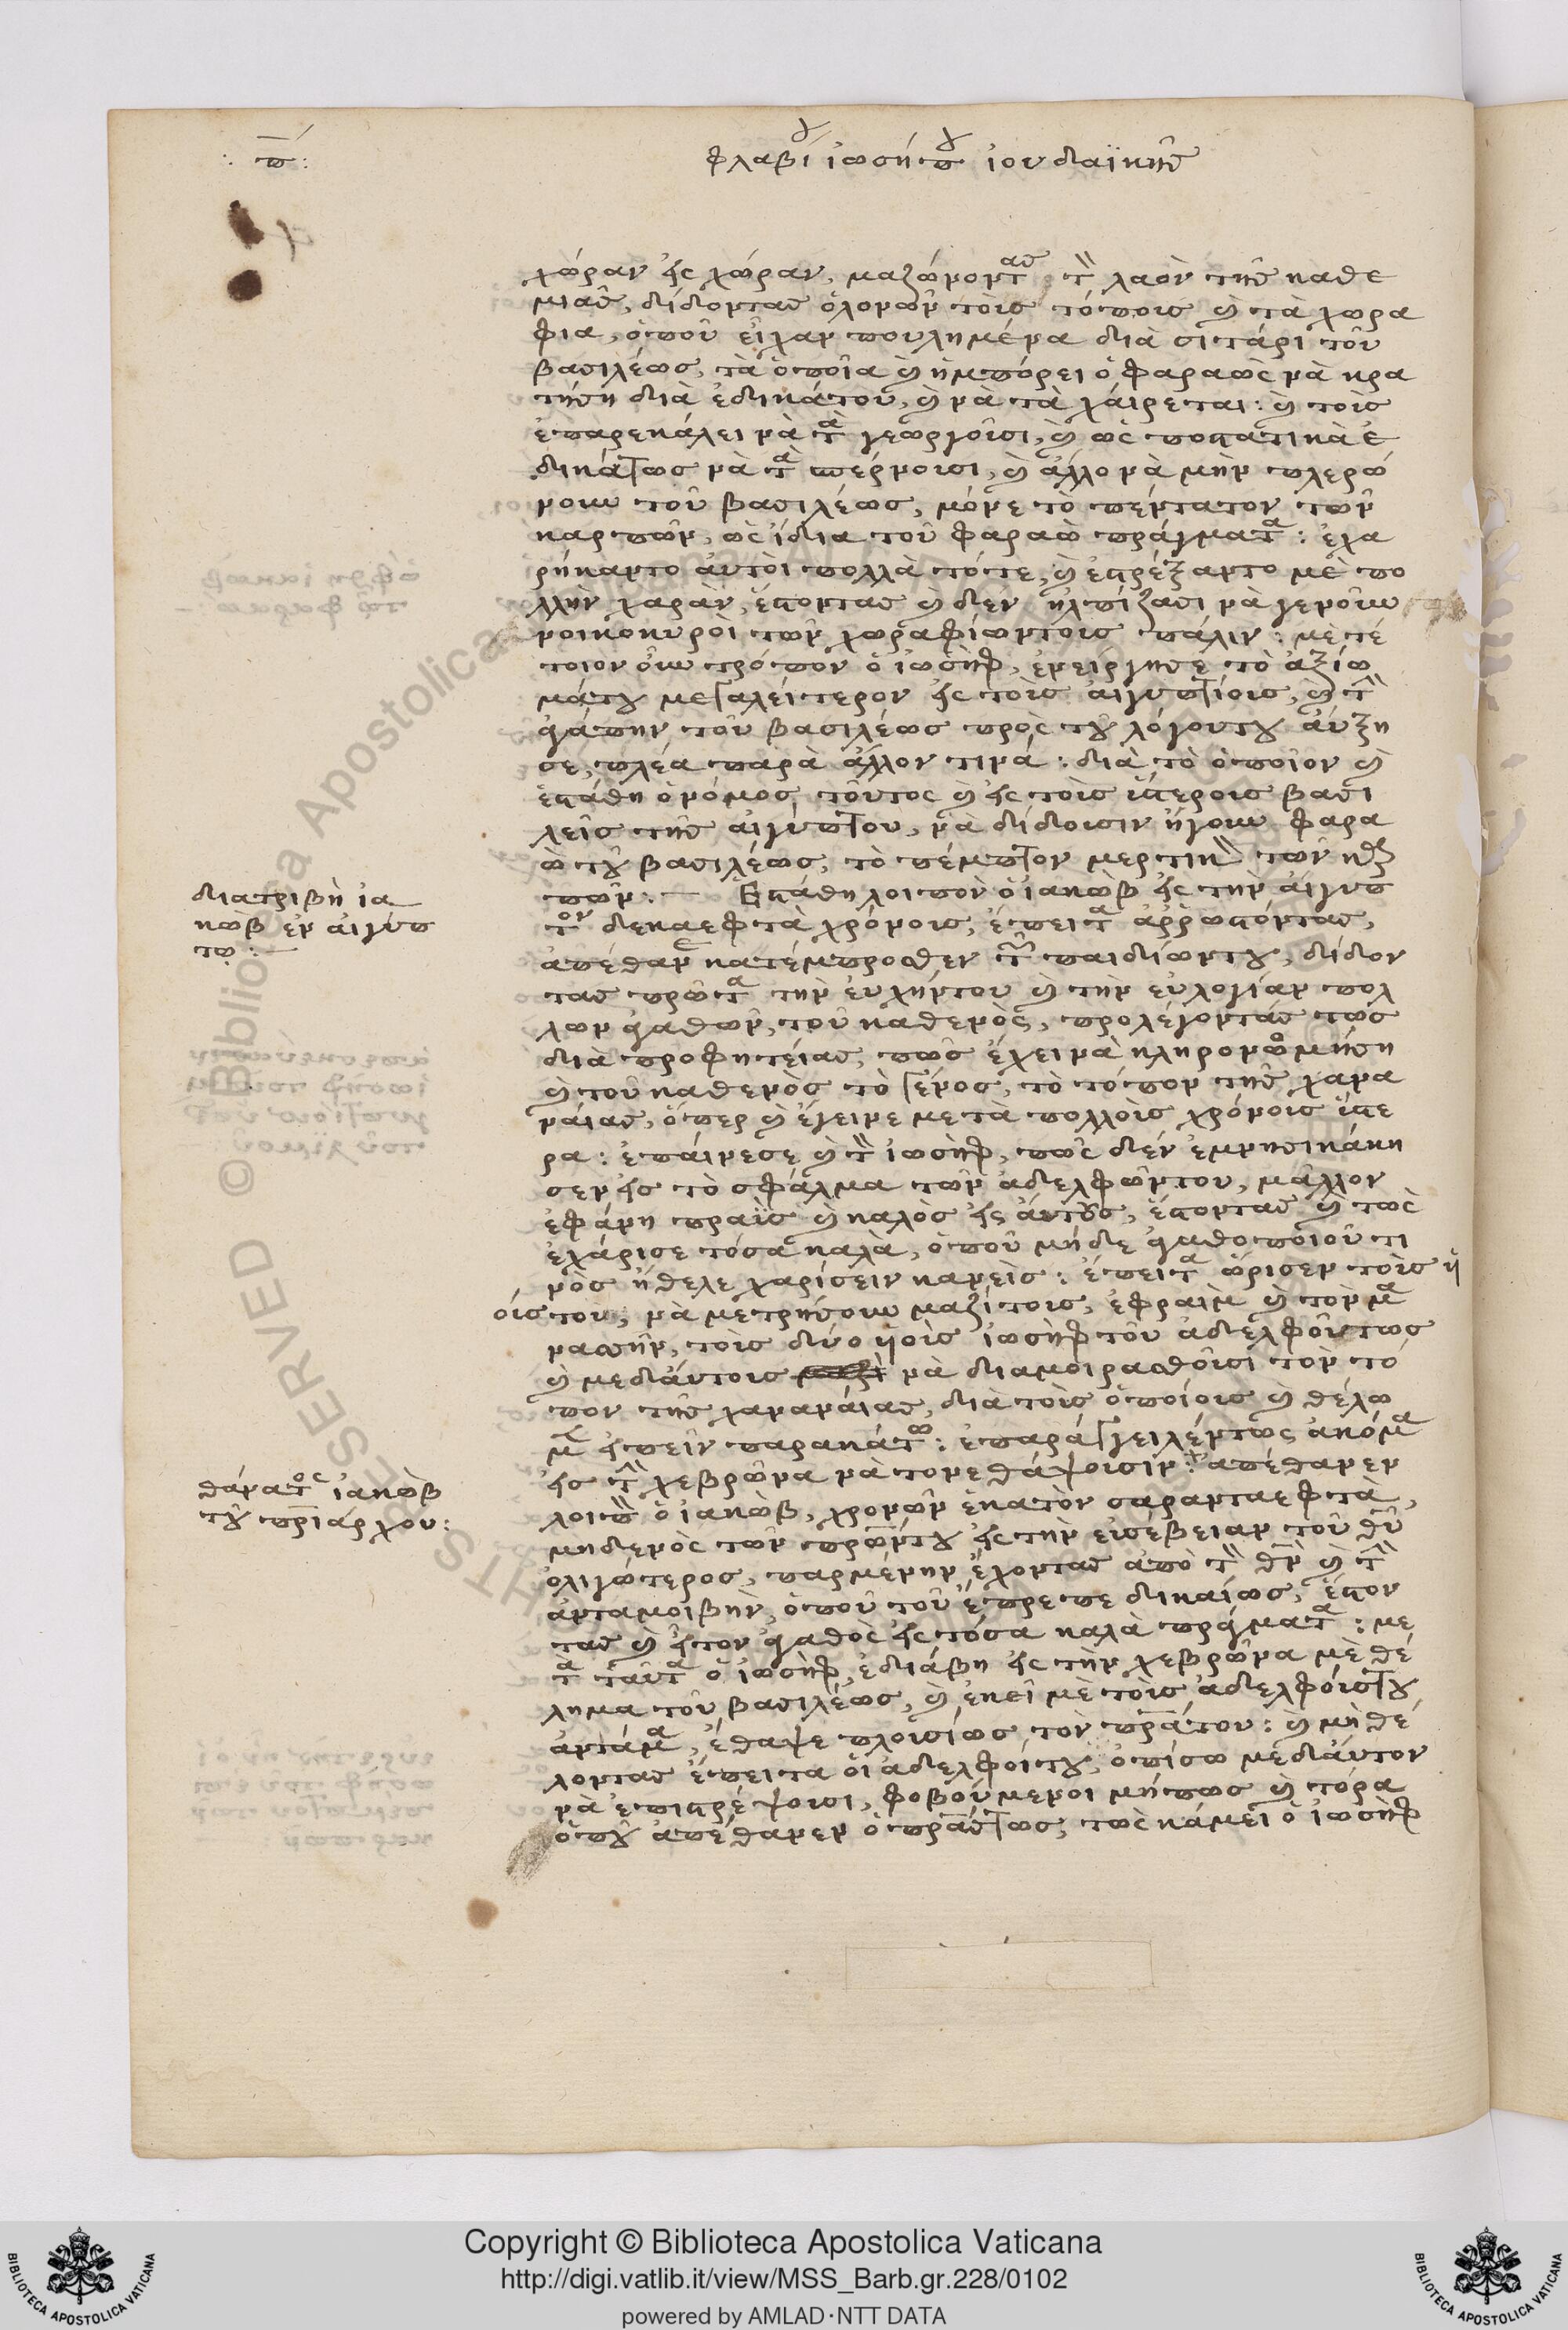 : π :
φλαβίου ἰωσήπου ἰουδαϊκῆς
χώραν εἰς χώραν, μαζώνοντας τὸν λαὸν τῆς καθε
μιᾶς, δίδοντας ὁλονῶν τοῖς τόποις καὶ τὰ χωρα
φια, ὁποῦ εἶχαν πουλημένα διὰ σιτάρι τοῦ
βασιλέως, τὰ ὁποῖα καὶ ἠμπόρει ὁ φαραὼς νὰ κρα
τήση διὰ ἐδικάτου, καὶ νὰ τὰ χαίρεται: καὶ τοὶς
ἐπαρεκάλει νὰ τὰ γεωργοῦσι, καὶ ὡς ποστατικὰ ἐ
δικάτως νὰ τὰ σπέρνουσι, καὶ ἄλλο νὰ μὴν πλερώ
νουν τοῦ βασιλέως, μόνε τὸ πένταταον τῶν
καρπῶν, ὡς ἴδια τοῦ φαραὼ πράγματα: ἐχα
ρήκαντο ἀυτοὶ πολλὰ τότε, καὶ ἐστρέξαντο μὲ πο
λλὴν χαρὰν, ἔστοντας καὶ δὲν ἠλπίζασι νὰ γενοῦν
νοικοκυροὶ τῶν χωραφίωντοις πάλιν: μὲ τέ
τοιον οὖν τρόπον ὁ ἰωσὴφ, ἐνείργησε τὸ ἀξίω
μάτου μεγαλείτερον εἰς τοὶς αἰγυπτίοις, καὶ τὴν
ἀγάπην τοῦ βασιλέως πρὸς τοῦ λόγουτου ἀύξη
σε, πλέα παρὰ ἄλλον τινά: διὰ τὸ ὁποῖον καὶ
ἐστάθη ὁ νόμος τοῦτος καὶ εἰς τοὶς ὕστεροις βασι
λεῖς τῆς αἰγύπτου, νὰ δίδουσιν ἤγουν φαρα
ὼ τοῦ βασιλέως, τὸ πέμπτον μερτικὸν τῶν καρ
πῶν: — Εστάθη λοιπὸν ὁ ἰακὼβ εἰς τὴν αἴγυπ
τον δεκαεφτὰ χρόνοις, ἔπειτα ἀῤῥωστόντας,
ἀπέθανε κατέμπροσθεν τῶν παιδιώντου, δίδον
τας πρῶτα τὴν ἐυχήντου καὶ τὴν εὐλογίαν πολ
λῶν ἀγαθῶν, τοῦ καθενὸς, προλέγοντάς τως
διὰ προφητείας, πῶς ἔχει νὰ κληρονομήση
καὶ τοῦ καθενὸς τὸ γένος, τὸ τόπον τῆς χανα
ναίας, ὅπερ καὶ ἔγεινε μετὰ πολλοὶς χρόνοις ὕστε
ρα: ἐπαίνεσε καὶ τὸν ἰωσὴφ, πῶς δὲν ἐμνησικάκη
σεν εἰς τὸ σφάλμα τῶν ἀδελφῶντου, μᾶλλον
ἐφάνη πραῒς καὶ καλὸς εἰς ἀυτοὺς, ἔστοντας καὶ τὼς
ἐχάρισε τόσα καλὰ, ὁποῦ μήδε ἀγαθοποιοῦ τι
νὸς ἤθελε χαρίσειν κανεὶς: ἔπειτα ὥρισεν τοὶς ὑι
οίς του, νὰ μετρήσουν μαζί τοις, ἐφραὶμ καὶ τὸν μα
νασῆν, τοὶς δύο ὑιοὶς ἰωσὴφ τοῦ ἀδελφοῦντως
καὶ μεδιάυτοις νὰ διαμοιρασθοῦσι τὸν τό
πον τῆς χανανάιας, διὰ τοὶς ὁποίοις καὶ θέλω
μεν εἰπεῖν παρακάτω: ἐπαράγγειλέντως ἀκόμα
εἰς τὴν χεβρῶνα νὰ τονε θάψουσιν: ἀπέθανεν
λοιπὸν ὁ ἰακὼβ, χρονῶν ἑκατὸν σαρανταεφτὰ,
μηδενὸς τῶν πρώντου εἰς τὴν εὐσέβειαν τοῦ θεοῦ
ὀλιγώτερος, παρμένην ἔχοντας ἀπὸ τὸν θεὸν καὶ τὴν
ἀνταμοιβὴν, ὁποῦ τοῦ ἔπρεπε δικαίως, ἔστον
τας καὶ ἦτον ἀγαθὸς εἰς τόσα καλὰ πράγματα: με
τὰ ταῦτα ὁ ἰωσὴφ, ἐδιάβη εἰς τὴν χεβρῶνα μὲ θέ
λημα τοῦ βασιλέως, καὶ ἐκεῖ μὲ τοὶς ἀδελφόιςτου
ἀντάμα, ἔθαψε πλουσίως τὸν πατέρατου: καὶ μὴ θέ
λοντας ἔπειτα ὁι ἀδελφοίτου, ὀπίσω μεδιάυτον
νὰ ἐπιστρέψουσι, φοβούμενοι μήπως καὶ τόρα
ὁποῦ ἀπέθανεν ὁ πατέραςτως, τὼς κάμει ὁ ἰωσὴφ
διατριβὴ ἰα
κὼβ ἐν αἰγύπ
τῳ: —
θάνατος ἰακὼβ
τοῦ πατριάρχου:
Copyright © Biblioteca Apostolica Vaticana
http://digi.vatlib.it/view/MSS_Barb.gr.228/0102
powered by AMLAD·NTT DATA
BIBLIOTECA APOSTOLICA VATICANA
BIBLIOTECA APOSTOLICA VATICANA